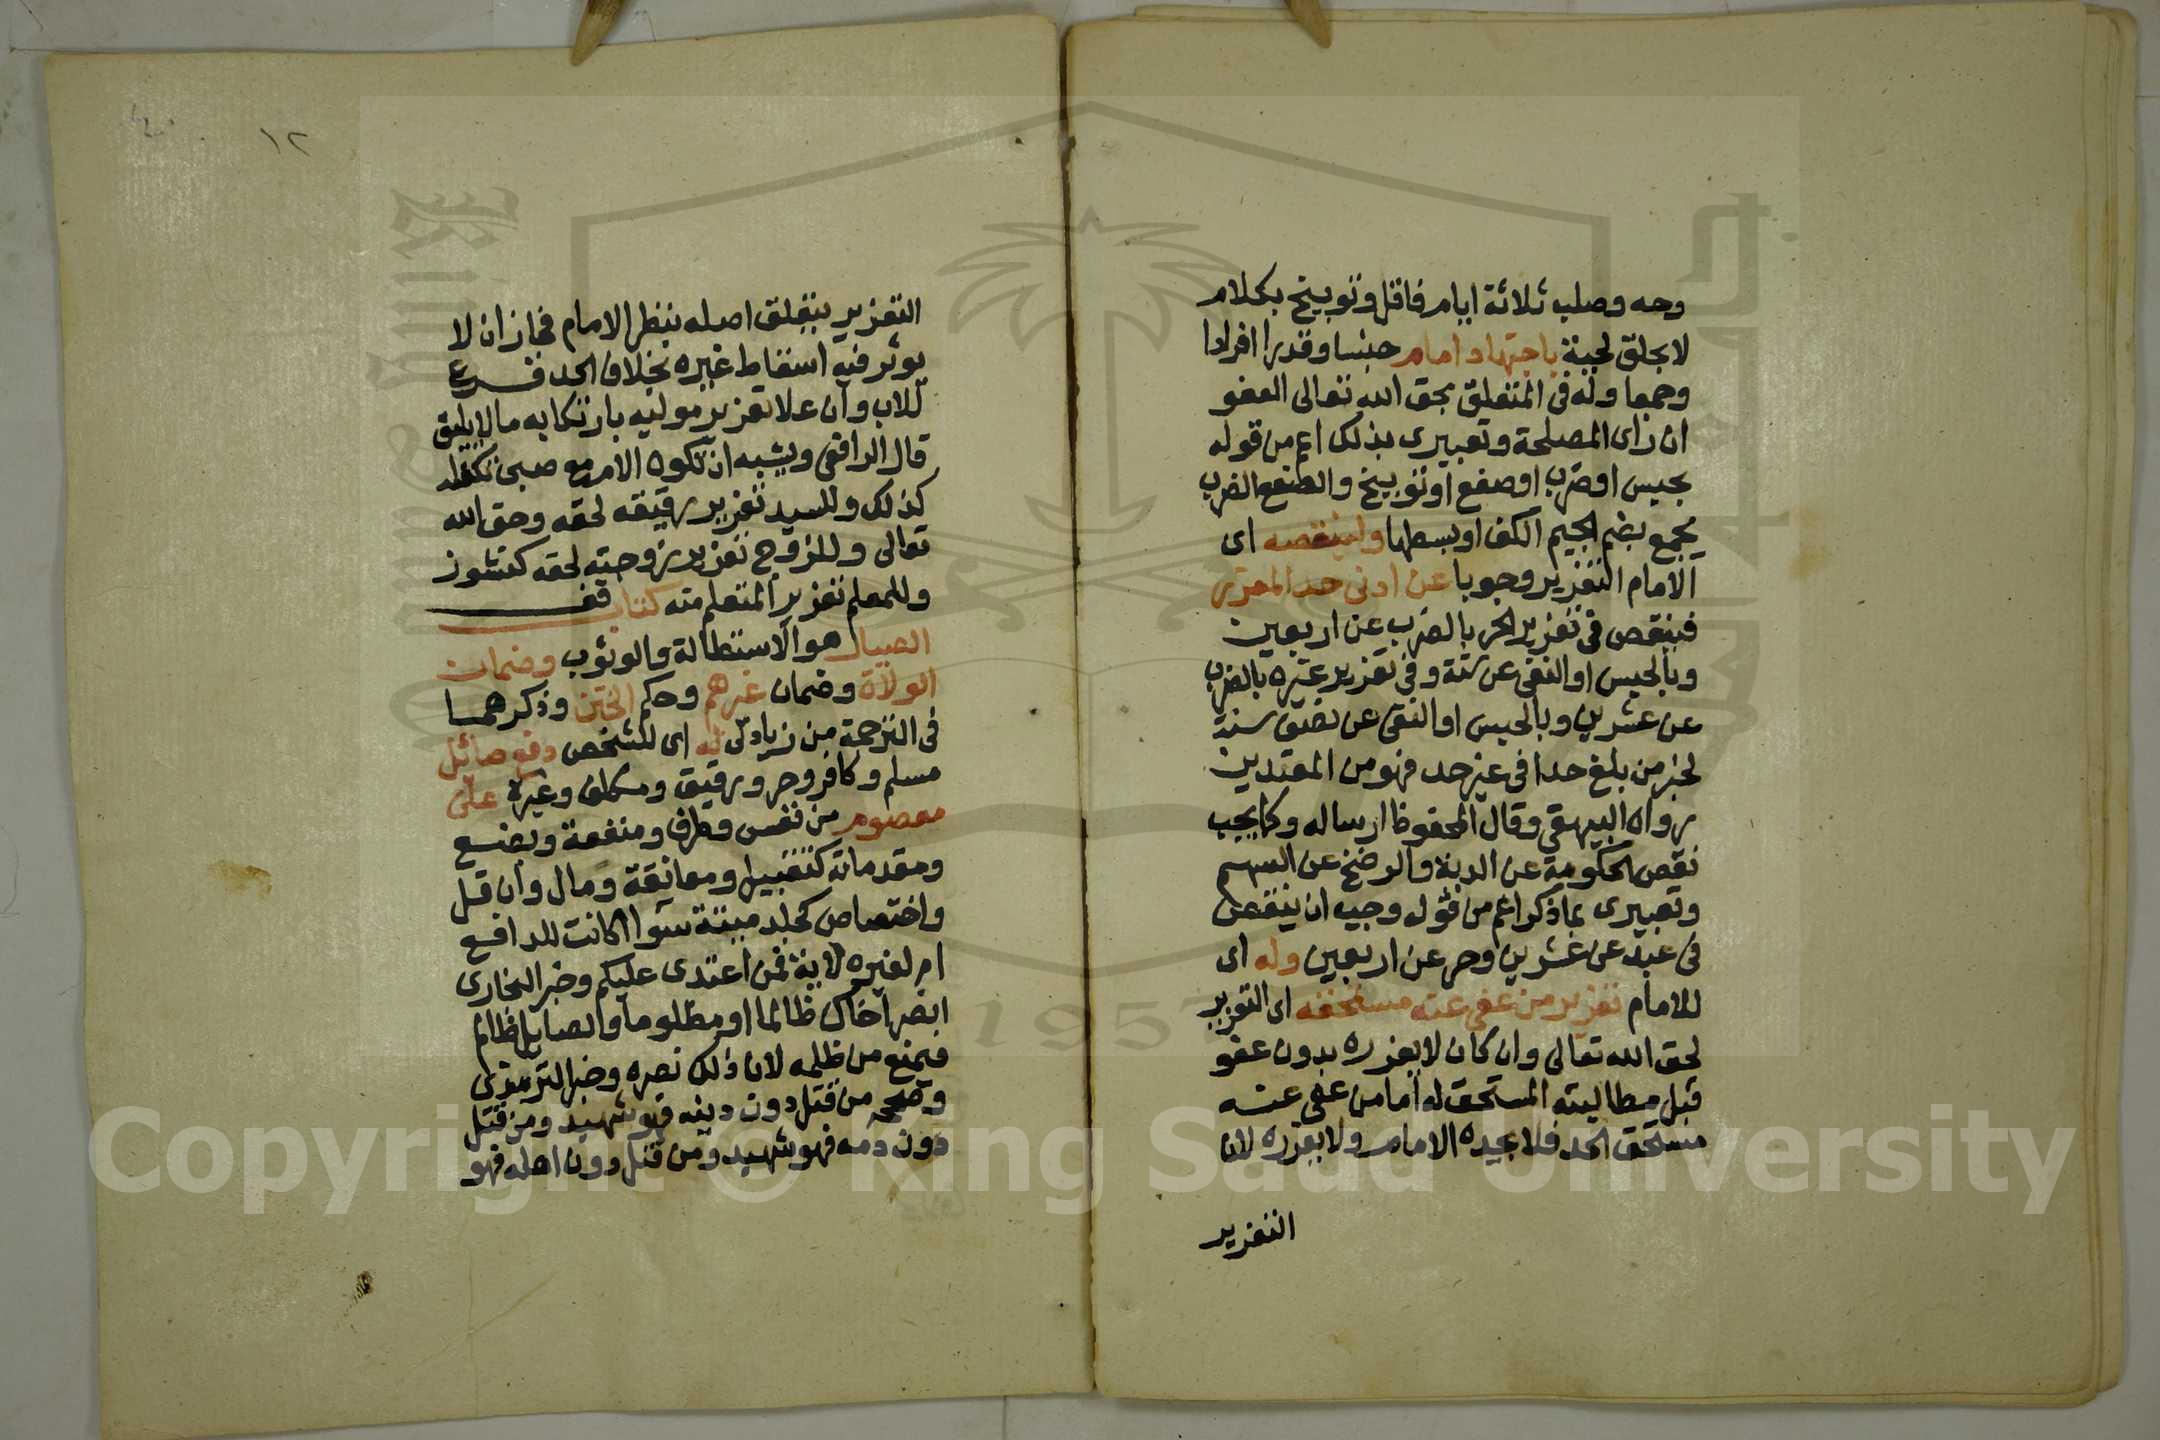 وجه وصلب ثلاثة ايام فاقل وتوبيخ بكلام
لا بحلق لحية باجتهاد امام جنسا وقدرا افرادا
وجمعا وله في المتعلق بحق الله تعالى العفو
ان راى المصلحة وتعبيرى بذلك اعم من قوله
بحبس او ضرب او صفع او توبيخ والصفع الضرب
بجمع بضم الجيم الكف او بسطها ولينقصه اى
الامام التعزير وجوبا عن ادنى حد المعزر
فينقص في تعزير الحر بالضرب عن اربعين
وبالحبس او النفى عن سنة وفي تعزير غيره بالضرب
عن عشرين وبالحبس او النفى عن نصف سنة
لخبر من بلغ حدا في غير حد فهو من المعتدين
رواه البيهقي وقال المحفوظ ارساله وكما يجب
نقص الحكومة عن الدية والرضخ عن السهم
وتعبيرى بما ذكر اعم من قوله وجب ان ينقص
في عبد عن عشرين وحر عن اربعين وله اى
للامام تعزير من عفى عنه مستحقه اى التعزير
لحق الله تعالى وان كان لا يعزره بدون عفو
قبل مطالبته المستحق له اما من عفى عنه
مستحق الحد فلا يحده الامام ولا يعزره لان
التعزير
١٢
التعزير يتعلق اصله بنظر الامام فجاز ان لا
يوثر فيه اسقاط غيره بخلاف الحد فرع
للاب وان علا تعزير موليه بارتكابه ما لا يليق
قال الرافعي ويشبه ان تكون الام مع صبى تكفله
كذلك وللسيد تعزير رقيقه لحقه وحق الله
تعالى وللزوج تعزير زوجته لحقه كنشوز
وللمعلم تعزير المتعلم منه كتاب
الصيال هو الاستطالة والوثوب وضمان
الولاة وضمان غيرهم وحكم الختن وذكرهما
في الترجمة من زيادتى له اى للشخص دفع صائل
مسلم وكافر وحر ورقيق ومكلف وغيره على
معصوم من نفس وطرف ومنفعة وبضع
ومقدماته كتقبيل ومعانقة ومال وان قل
واختصاص كجلد ميتة سوا اكانت للدافع
ام لغيره لاية فمن اعتدى عليكم وخبر البخارى
انصر اخاك ظالما او مظلوما والصايل ظالم
فيمنع من ظلمه لان ذلك نصره وخبر الترمذى
وصححه من قتل دون دينه فهو شهيد ومن قتل
دون دمه فهو شهيد ومن قتل دون اهله فهو
1957
Copyright © King Saud University